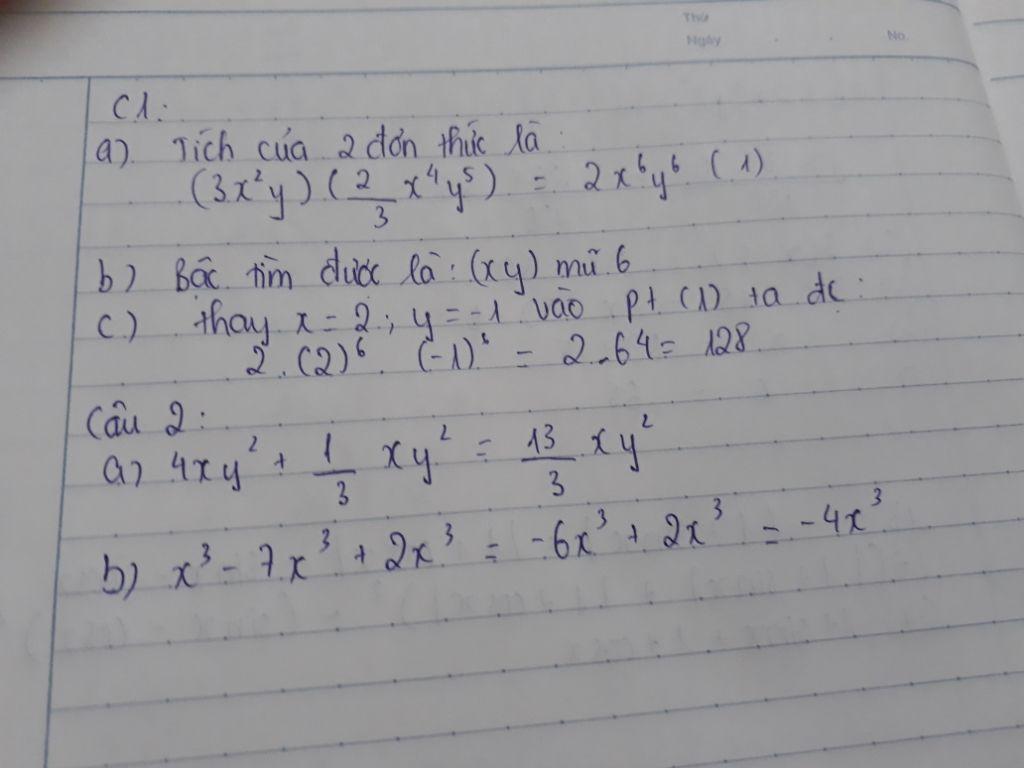 Thứ
Ngày . . No.
C1:
a) Tích của 2 đơn thức là:
(3x²y) (2/3 x⁴y⁵) = 2x⁶y⁶ (1)
b) Bậc tìm được là: (xy) mũ 6
c) thay x = 2; y = -1 vào pt (1) ta đc:
2. (2)⁶. (-1)⁶ = 2.64 = 128
Câu 2:
a) 4xy² + 1/3 xy² = 13/3 xy²
b) x³ - 7x³ + 2x³ = -6x³ + 2x³ = -4x³